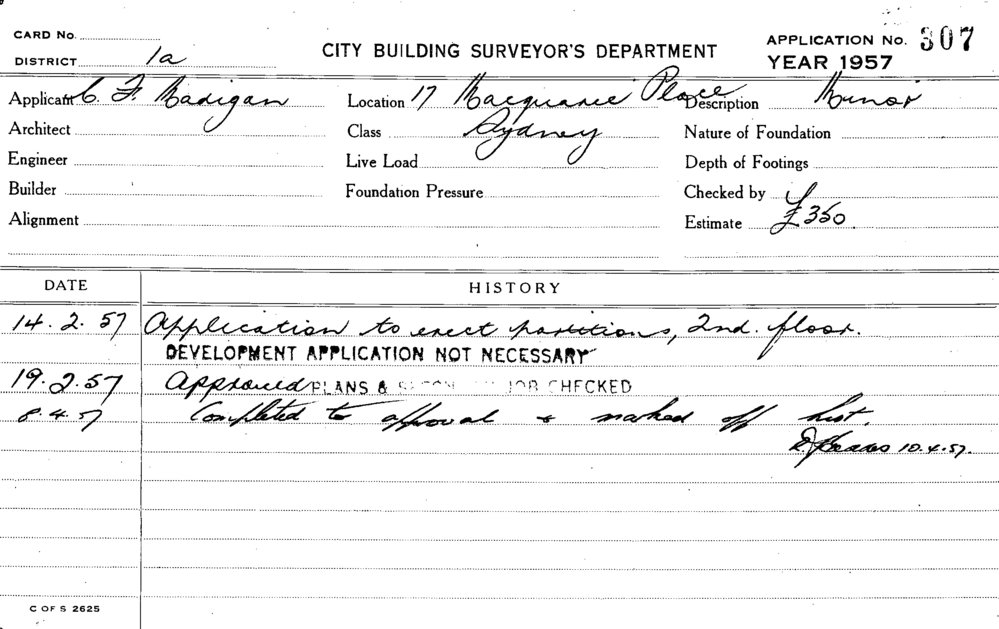 CARD No.
DISTRICT 1a
CITY BUILDING SURVEYOR'S DEPARTMENT
APPLICATION No. 307
YEAR 1957
Applicant C. F. Madigan
Location 17 Macquarie Place
Description Minor
Architect
Class Sydney
Nature of Foundation
Engineer
Live Load
Depth of Footings
Builder
Foundation Pressure
Checked by
Alignment
Estimate £350.
DATE
HISTORY
14.2.57 Application to erect partitions, 2nd. floor.
DEVELOPMENT APPLICATION NOT NECESSARY
19.2.57 Approved PLANS & JOB CHECKED
8.4.57 Completed to approval & marked off list.
10.4.57.
C OF S 2625